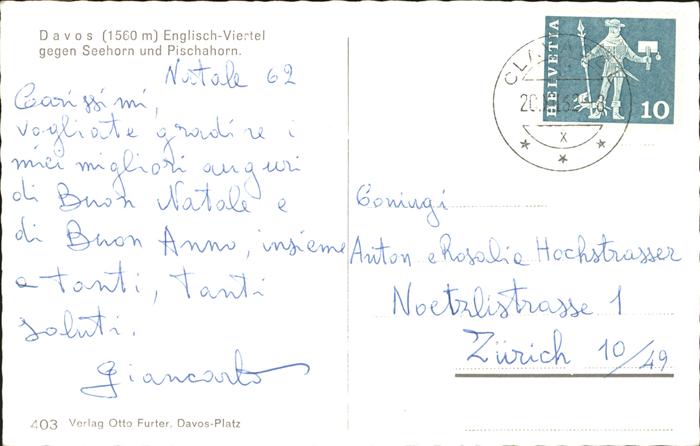 Davos (1560 m) Englisch-Viertel
gegen Seehorn und Pischahorn.
Natale 62
Carissimi,
vogliate gradire i
miei migliori auguri
di Buon Natale e
di Buon Anno, insieme
a tanti, tanti
saluti.
Giancarlo
403 Verlag Otto Furter, Davos-Platz
HELVETIA
10
X
Coniugi
Anton e Rosalia Hochstrasser
Noetzlistrasse 1
Zürich 10/49